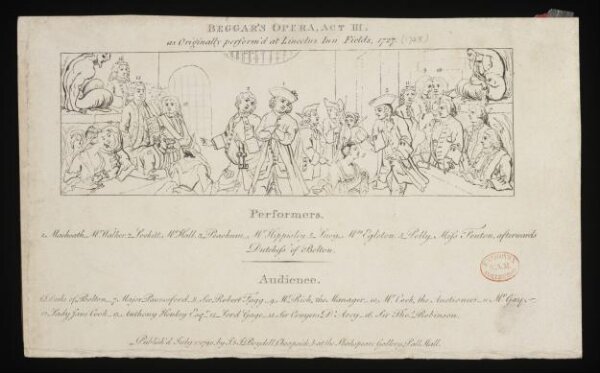 BEGGAR'S OPERA, ACT III.
as Originally perform'd at Lincolns Inn Fields, 1727. (1728)
Performers.
1. Macheath, Mr. Walker. 2. Lockitt, Mr. Hall. 3. Peachum, Mr. Hippisley. 4. Lucy, Mrs. Egleton. 5. Polly, Miss Fenton, afterwards
Dutchess of Bolton.
Audience.
6. Duke of Bolton. 7. Major Pauncford. 8. Sir Robert Fagg. 9. Mr. Rich, the Manager. 10. Mr. Cock, the Auctioneer. 11. Mr. Gay.
12. Lady Jane Cook. 13. Anthony Henley Esqr. 14. Lord Gage. 15. Sir Conyers D'Arcy. 16. Sir Thos. Robinson.
Publish'd July 1, 1790, by J. & J. Boydell, Cheapside, & at the Shakspeare Gallery, Pall Mall.